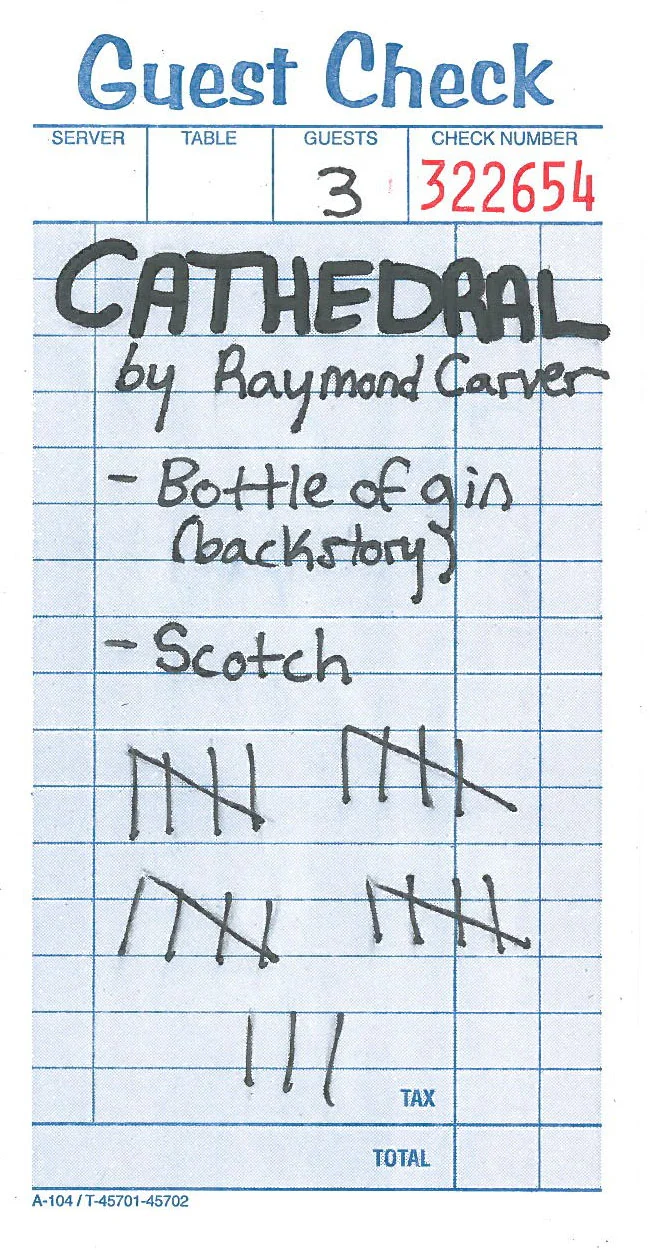 Guest Check
SERVER TABLE GUESTS CHECK NUMBER
3 322654
CATHEDRAL
by Raymond Carver
- Bottle of gin
(backstory)
- Scotch
TAX
TOTAL
A-104 / T-45701-45702